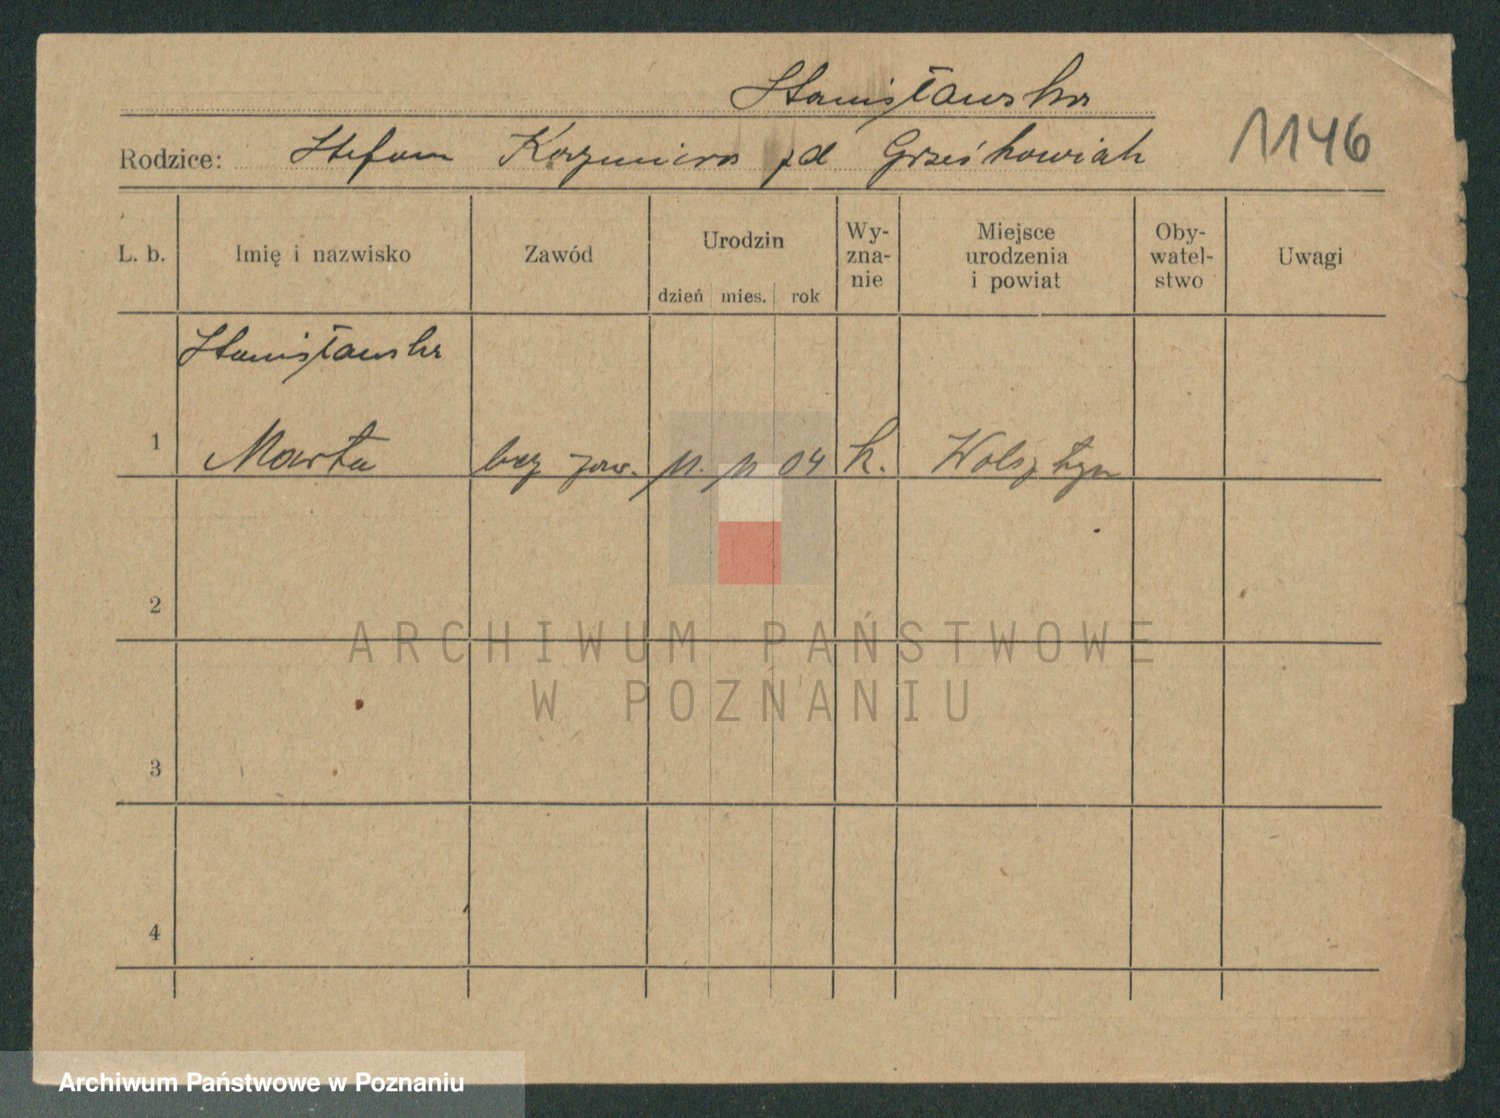 Stanisławska
Rodzice: Stefan Kazmiera zd Grześkowiak
1146
L. b. Imię i nazwisko Zawód Urodzin dzień mies. rok Wy-zna-nie Miejsce urodzenia i powiat Oby-watel-stwo Uwagi
Stanisławska
1 Marta bez zaw. 11. 11 04 k. Wolsztyn
2
ARCHIWUM PAŃSTWOWE
W POZNANIU
3
4
Archiwum Państwowe w Poznaniu